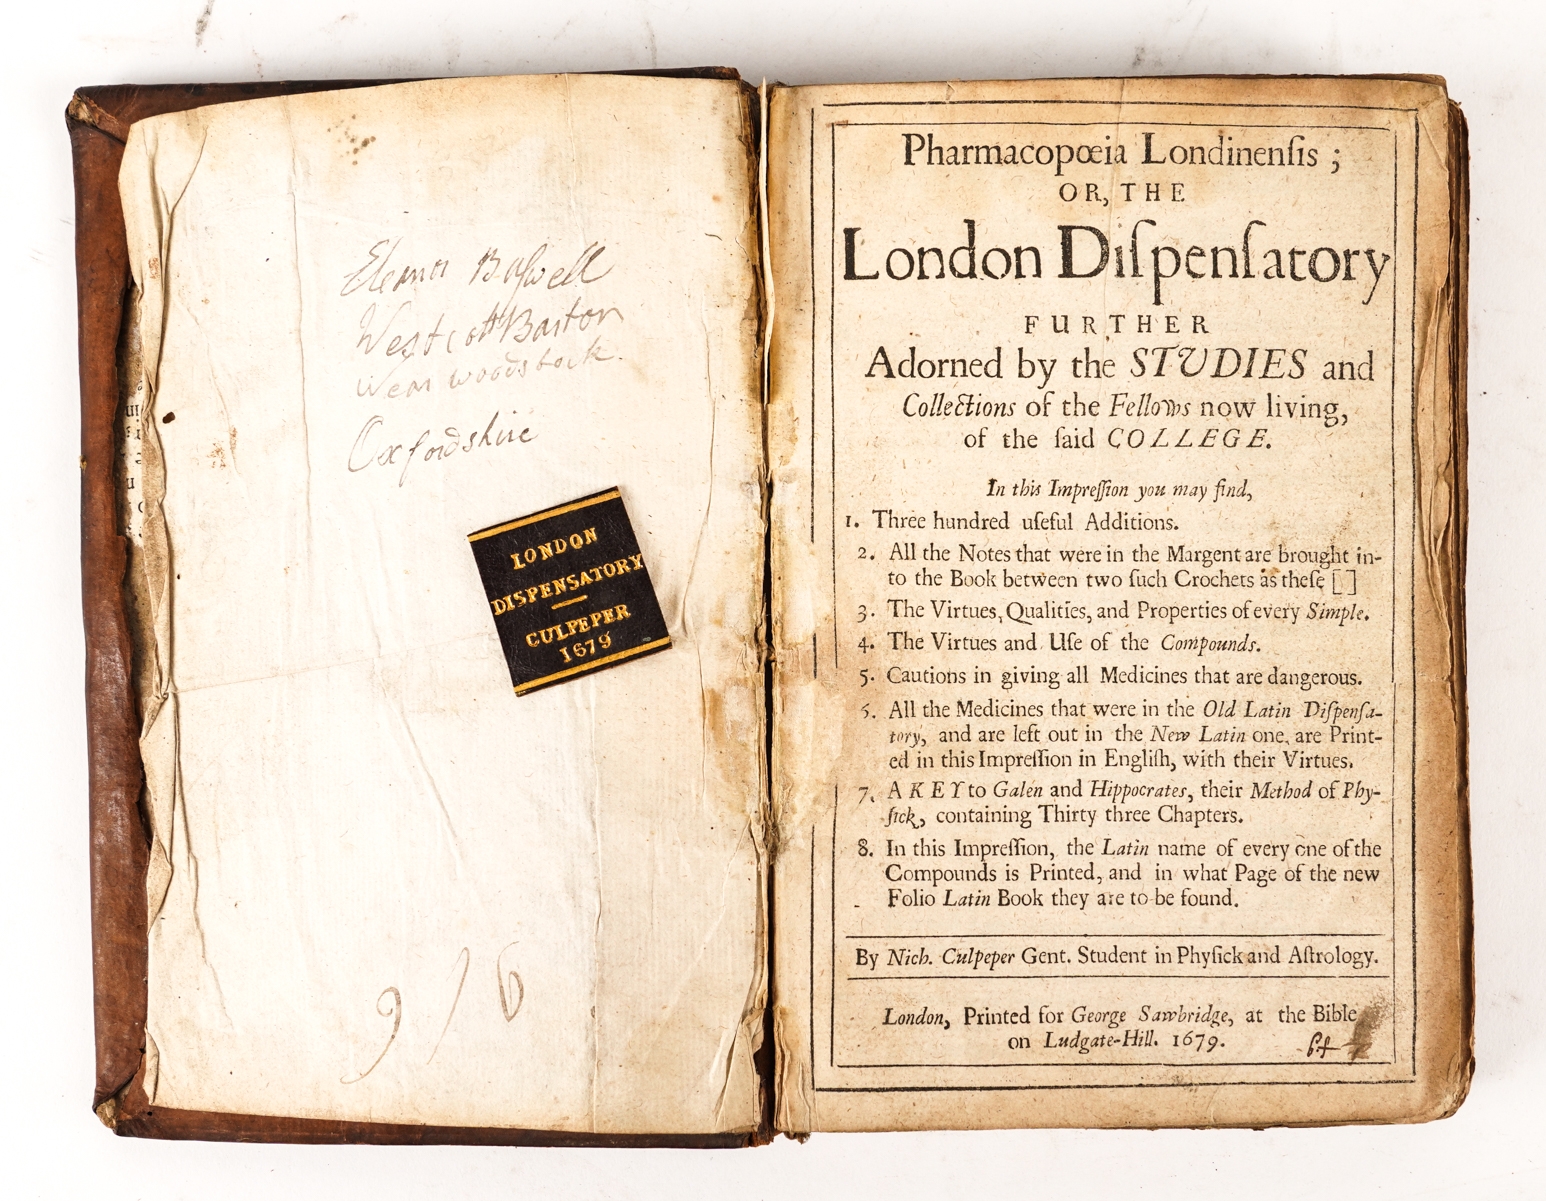 Eleanor Boswell
Westcott Barton
Near Woodstock.
Oxfordshire
LONDON
DISPENSATORY
CULPEPER
1679
9 / 6
Pharmacopœia Londinenſis ;
OR, THE
London Diſpenſatory
FURTHER
Adorned by the STUDIES and
Collections of the Fellows now living,
of the ſaid COLLEGE.
In this Impreſſion you may find,
1. Three hundred uſeful Additions.
2. All the Notes that were in the Margent are brought in-
to the Book between two ſuch Crochets as theſe [ ]
3. The Virtues, Qualities, and Properties of every Simple.
4. The Virtues and Uſe of the Compounds.
5. Cautions in giving all Medicines that are dangerous.
6. All the Medicines that were in the Old Latin Diſpenſa-
tory, and are left out in the New Latin one, are Print-
ed in this Impreſſion in Engliſh, with their Virtues.
7. A KEY to Galen and Hippocrates, their Method of Phy-
ſick, containing Thirty three Chapters.
8. In this Impreſſion, the Latin name of every one of the
Compounds is Printed, and in what Page of the new
Folio Latin Book they are to be found.
By Nich. Culpeper Gent. Student in Phyſick and Aſtrology.
London, Printed for George Sawbridge, at the Bible
on Ludgate-Hill. 1679.